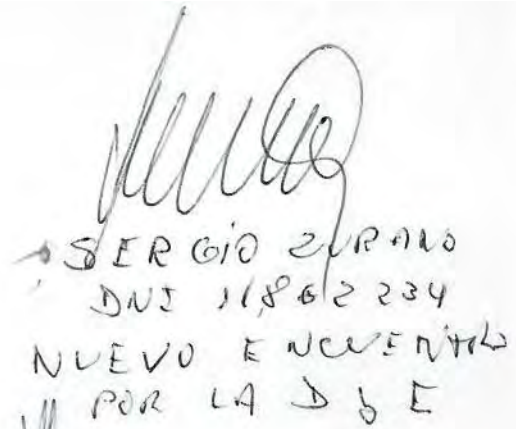 SERGIO ZURANO
DNI 11862234
NUEVO ENCUENTRO
POR LA D y E